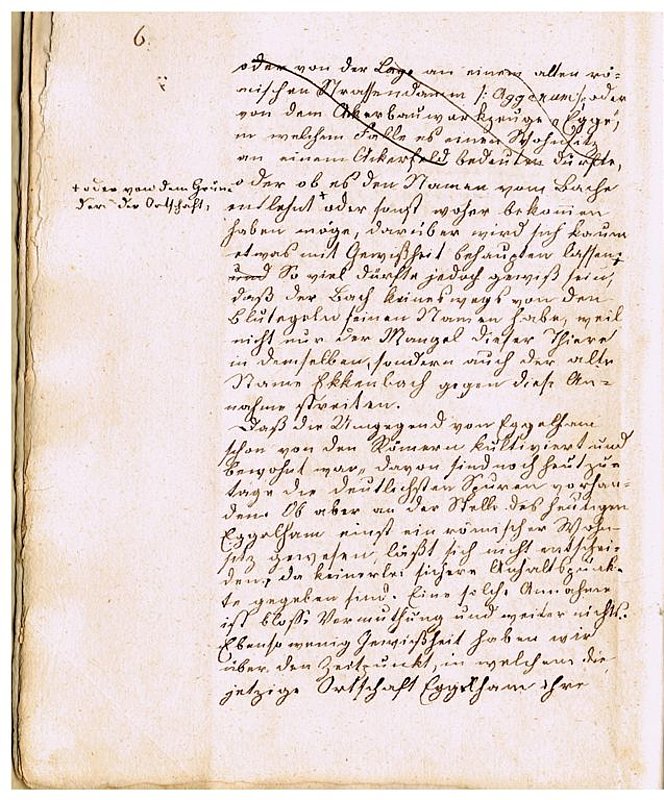 6.
oder von der Lage an einem alten rö-
mischen Strassendamm /: Aggerum :/ oder
von dem Ackerbauwerkzeuge „Egge",
in welchem Falle es einen Wohnsitz
an einem Ackerfeld bedeuten dürfte,
+ oder von dem Grün-
der der Ortschaft,
oder ob es den Namen vom Bache
entlehnt + oder sonst woher bekommen
haben möge, darüber wird sich kaum
etwas mit Gewißheit behaupten lassen;
und So viel dürfte jedoch gewiß sein,
daß der Bach keineswegs von den
Blutegeln seinen Namen habe, weil
nicht nur der Mangel dieser Thiere
in demselben, sondern auch der alte
Name Ekkenbach gegen diese An-
nahme streiten.
Daß die Umgegend von Eggelham
schon von den Römern kultiviert und
bewohnt war, davon sind noch heut zu
tage die deutlichsten Spuren vorhan-
den. Ob aber an der Stelle des heutigen
Eggelham einst ein römischer Wohn-
sitz gewesen, läßt sich nicht entschei-
den, da keinerlei sichere Anhaltspunk-
te gegeben sind. Eine solche Annahme
ist blosse Vermuthung und weiter nichts.
Ebenso wenig Gewißheit haben wir
über den Zeitpunkt, in welchem die
jetzige Ortschaft Eggelham ihre